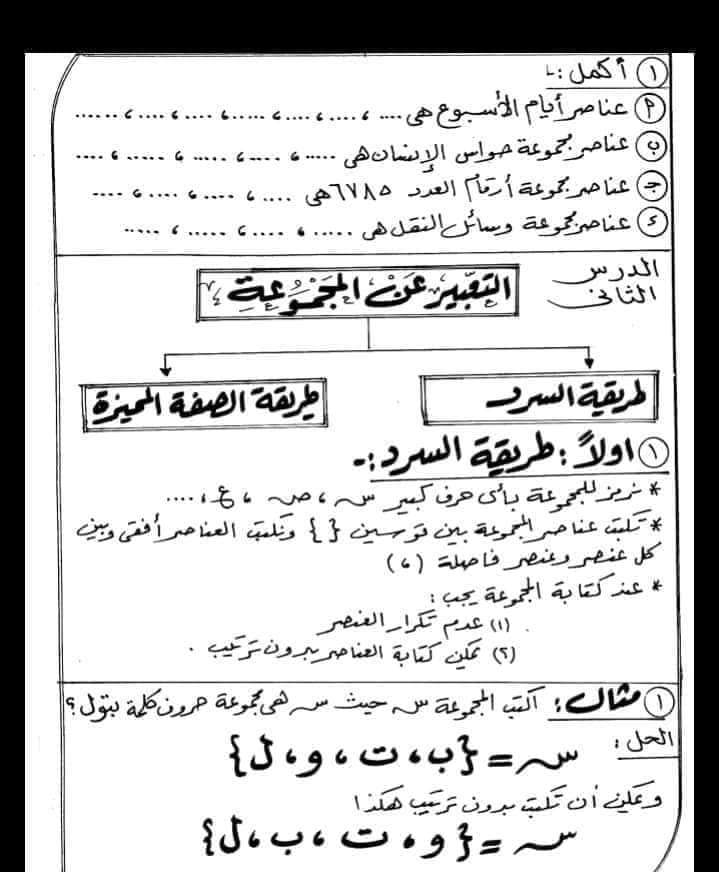 ١ أكمل :-
٢ عناصر أيام الأسبوع هى .... ، .... ، .... ، ..... ، .... ، .... ، ......
ب عناصر مجموعة حواس الإنسان هى ..... ، ..... ، ..... ، ..... ، ....
جـ عناصر مجموعة أرقام العدد ٦٧٨٥ هى .... ، .... ، .... ، ....
د عناصر مجموعة وسائل النقل هى ..... ، .... ، ..... ، .....
الدرس
الثانى
التعبير عن المجموعة
طريقة السرد
طريقة الصفة المميزة
١ اولاً : طريقة السرد :-
* نرمز للمجموعة بأى حرف كبير س ، ص ، ع ، ....
* تكتب عناصر المجموعة بين قوسين { } وتكتب العناصر أفقى وبين
كل عنصر وعنصر فاصلة (،)
* عند كتابة المجموعة يجب :
(١) عدم تكرار العنصر
(٢) يمكن كتابة العناصر بدون ترتيب .
١ مثال : اكتب المجموعة س حيث س هى مجموعة حروف كلمة بتول ؟
الحل :
س = {ب ، ت ، و ، ل}
ويمكن أن تكتب بدون ترتيب هكذا
س = {و ، ت ، ب ، ل}